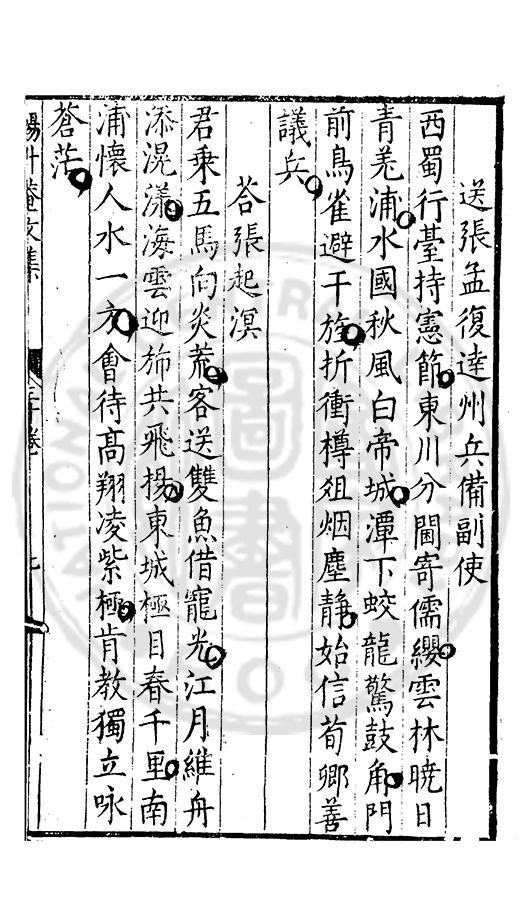 送張孟復達州兵備副使
西蜀行臺持憲節東川分閫寄儒纓雲林曉日
青羌浦水國秋風白帝城潭下蛟龍驚鼓角門
前鳥雀避干旌折衝樽俎烟塵靜始信荀卿善
議兵
荅張起溟
君乘五馬向炎荒客送雙魚借寵光江月維舟
添滉漾海雲迎斾共飛揚東城極目春千里南
浦懷人水一方會待高翔凌紫極肯教獨立咏
蒼茫
楊升菴文集
卷